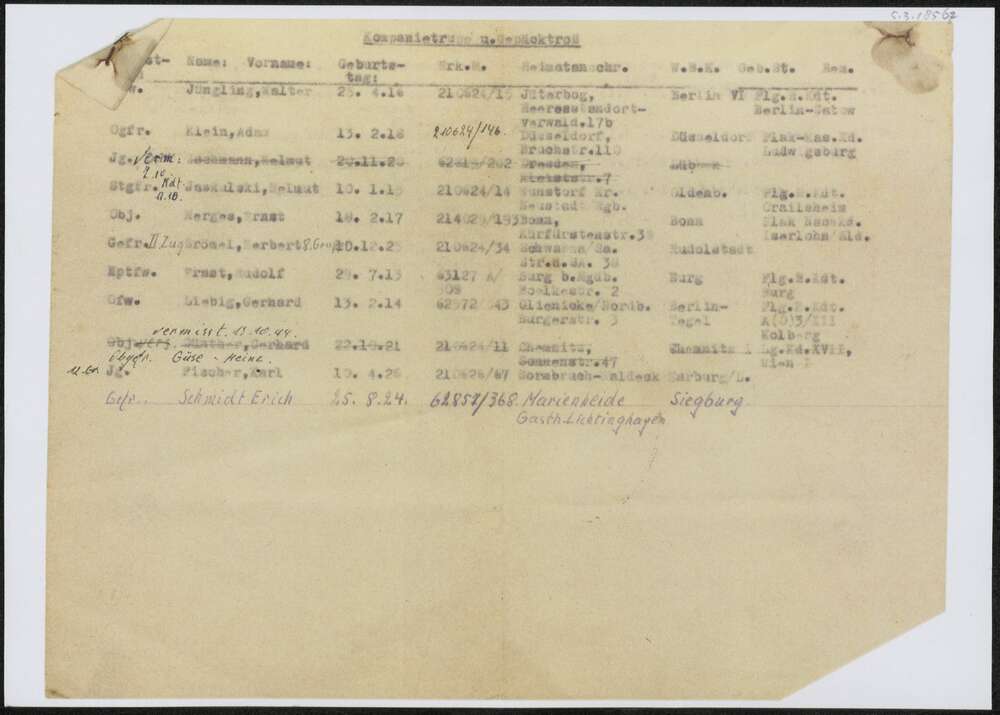 5.3.18562
Kompanietrupp u. Gepäcktroß
Name: Vorname: Geburts- Erk.M. Heimatanschr. W.B.K. Geb.St. Bem.
tag:
Jüngling,Walter 25. 4.16 210624/15 Jüterbog, Berlin VI Flg.E.Kdt.
Heeresstandort- Berlin-Gatow
verwald.17b
Ogfr. Klein,Adam 13. 2.18 210624/146. Düsseldorf, Düsseldorf Flak-Kas.Kd.
Bruchstr.110 Ludwigsburg
Jg. verm: Helmut 20.11.26 62815/202 Dresden, Lübeck
2.10. Kleiststr.7
Stgfr. Jaskulski,Helmut 10. 1.15 210624/14 Wunstorf Kr. Oldenb. Flg.E.Kdt.
11.10. Neustadt Rgb. Crailsheim
Obj. Merges,Ernst 18. 2.17 214029/193 Bonn, Bonn Flak
Kurfürstenstr.39 Iserlohn/
Gefr. II Zug Herbert 10.12.25 210624/34 Schwarza/Sa. Rudolstadt
Str.d.SA. 38
Hptfw. Ernst,Rudolf 29. 7.13 63127 A/ Burg b.Mgdb. Burg Flg.E.Kdt.
309 Boelkestr. 2 Burg
Ofw. Liebig,Gerhard 13. 2.14 62572 Glienicke/Nordb. Berlin- Flg.E.Kdt.
Burgerstr. 3 Tegel K(O)3/III
vermisst. 13.10.44. Kolberg
Obj. Günther,Gerhard 22.10.21 210624/11 Chemnitz, Chemnitz I Lg.Kd.XVII,
Obgfr. Güse - Heinz. Sonnenstr.47 Wien
Jg. Fischer,Karl 10. 4.26 210626/67 Bormbruch-Waldeck Marburg/L.
Gefr. Schmidt Erich 25. 8.24. 62857/368. Marienheide Siegburg
Gasth. Lichtinghagen